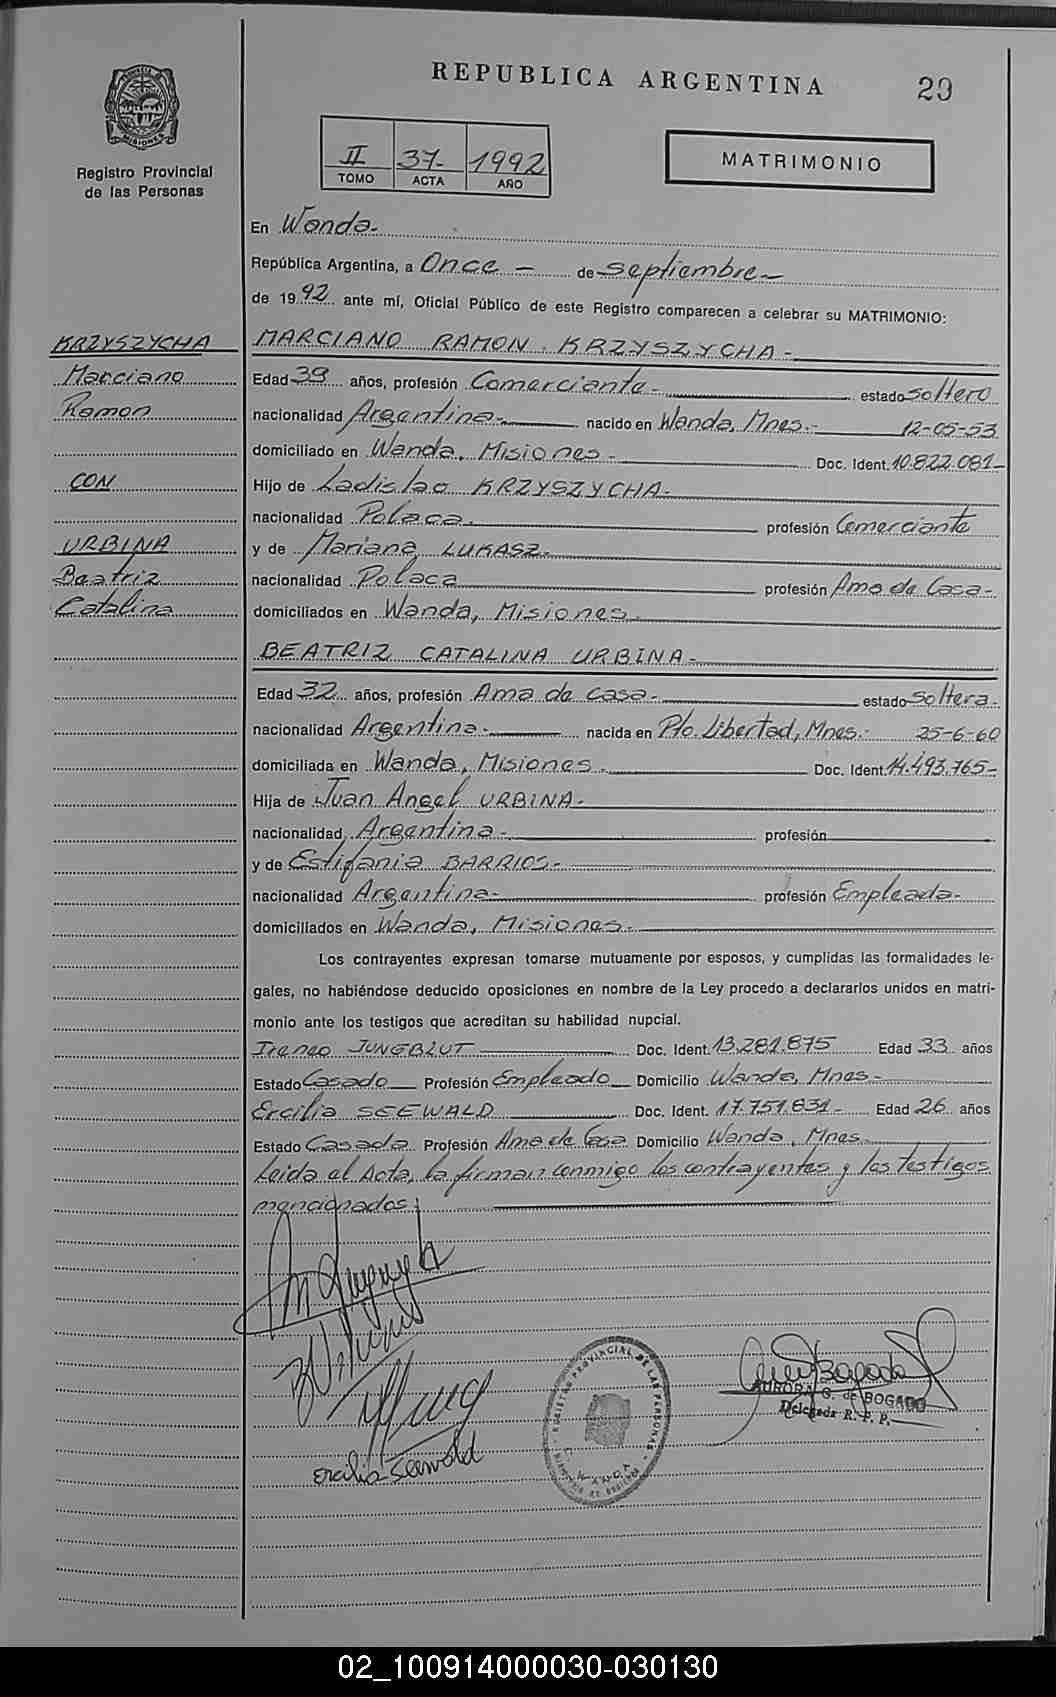 REPUBLICA ARGENTINA
29
PROVINCIA DE MISIONES
Registro Provincial
de las Personas
II 37- 1992
TOMO ACTA AÑO
MATRIMONIO
En Wanda.
República Argentina, a Once - de septiembre -
de 1992 ante mí, Oficial Público de este Registro comparecen a celebrar su MATRIMONIO:
KRZYSZYCHA
Marciano
Ramon
CON
URBINA
Beatriz
Catalina
MARCIANO RAMON KRZYSZYCHA -
Edad 39 años, profesión Comerciante - estado soltero
nacionalidad Argentina - nacido en Wanda, Mnes.- 12-05-53
domiciliado en Wanda, Misiones - Doc. Ident. 10.822.081-
Hijo de Ladislao KRZYSZYCHA-
nacionalidad Polaca. profesión Comerciante
y de Mariana LUKASZ-
nacionalidad Polaca profesión Ama de Casa-
domiciliados en Wanda, Misiones
BEATRIZ CATALINA URBINA-
Edad 32 años, profesión Ama de casa- estado soltera-
nacionalidad Argentina- nacida en Pto. Libertad, Mnes.- 25-6-60
domiciliada en Wanda, Misiones. Doc. Ident. 14.493.765-
Hija de Juan Angel URBINA-
nacionalidad Argentina- profesión
y de Estifania BARRIOS-
nacionalidad Argentina- profesión Empleada-
domiciliados en Wanda, Misiones-
Los contrayentes expresan tomarse mutuamente por esposos, y cumplidas las formalidades le-
gales, no habiéndose deducido oposiciones en nombre de la Ley procedo a declararlos unidos en matri-
monio ante los testigos que acreditan su habilidad nupcial.
Ireneo JUNGBLUT Doc. Ident. 13.281.875 Edad 33 años
Estado Casado Profesión Empleado Domicilio Wanda, Mnes-
Ercilia SEEWALD Doc. Ident. 17.751.831- Edad 26 años
Estado Casada Profesión Ama de Casa Domicilio Wanda, Mnes.
Leida el Acta, la firman conmigo los contrayentes y los testigos
mencionados;
Ercilia Seewald
REGISTRO PROVINCIAL DE LAS PERSONAS
WANDA
AURORA G. de BOGADO
Delegada R. P. P.
02_100914000030-030130